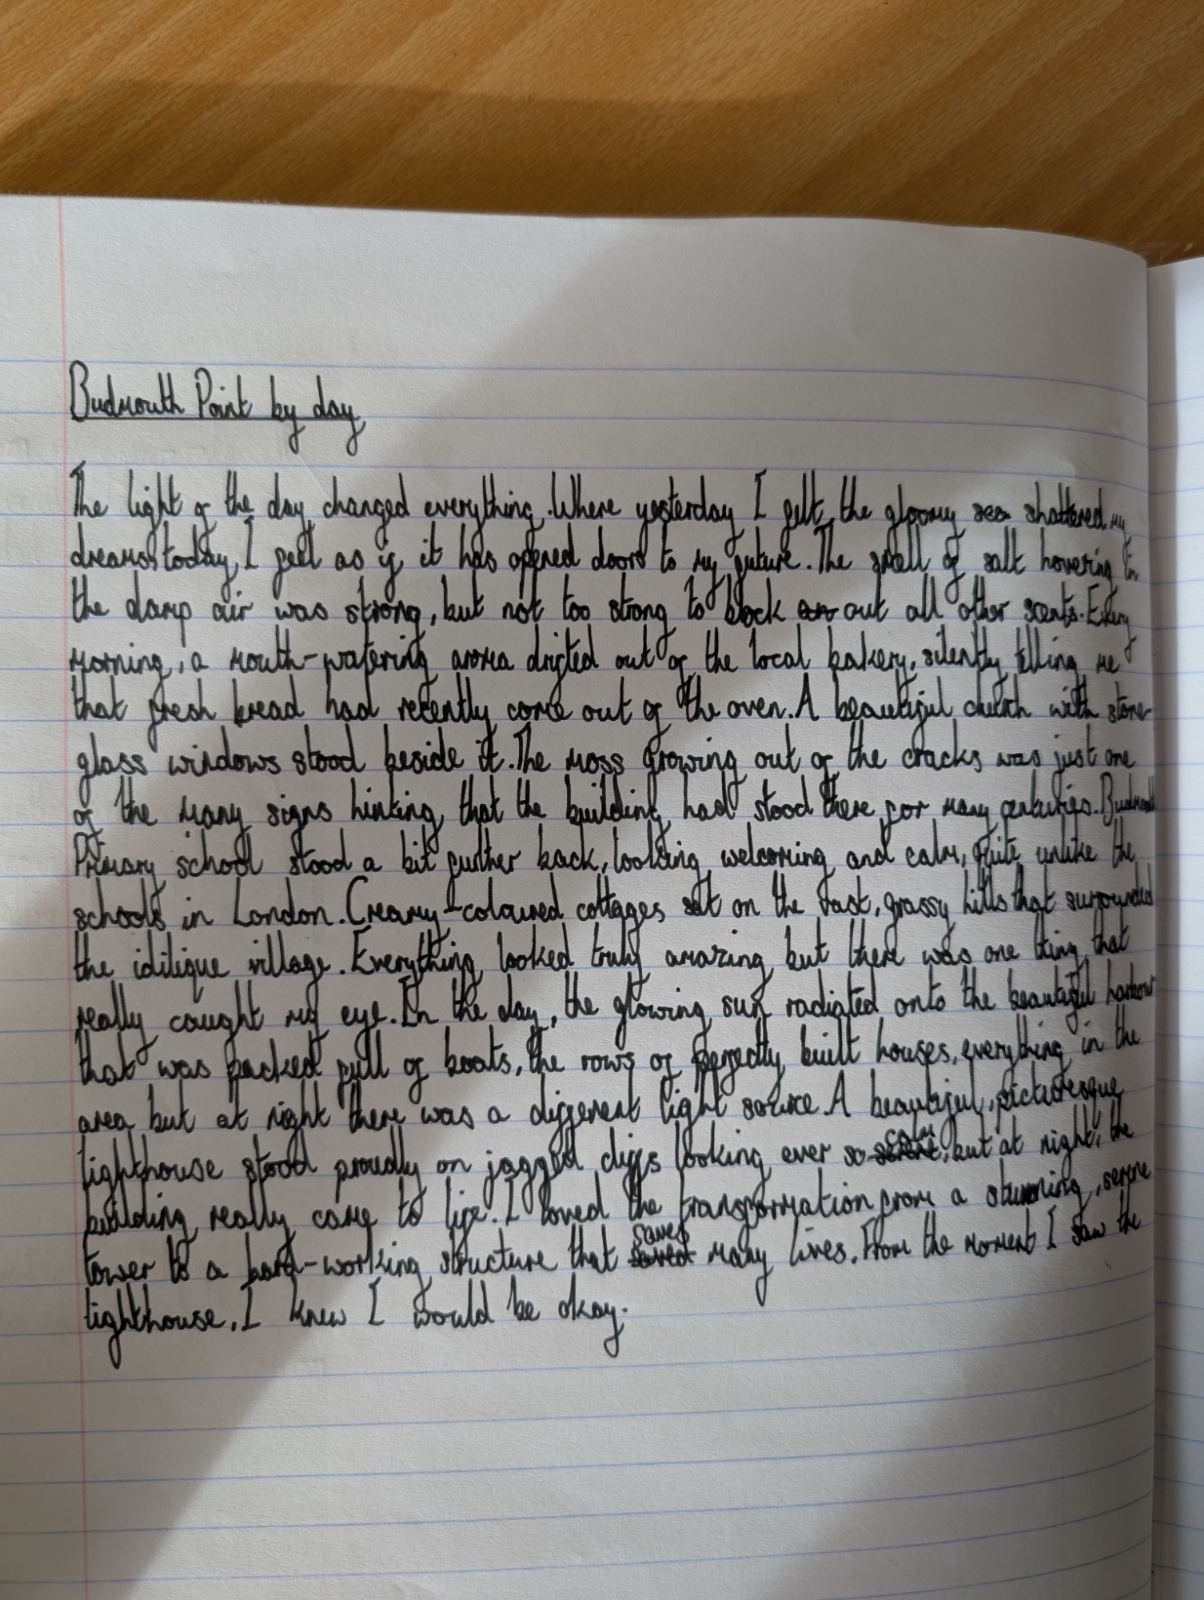 Budmouth Point by day
The light of the day changed everything. Where yesterday I felt the gloomy sea shattered my
dreams today, I feel as if it has opened doors to my future. The smell of salt hovering in
the damp air was strong, but not too strong to block an out all other scents. Every
morning, a mouth-watering aroma drifted out of the local bakery, silently telling me
that fresh bread had recently come out of the oven. A beautiful church with stone
glass windows stood beside it. The moss growing out of the cracks was just one
of the many signs hinting that the building had stood there for many centuries. Budmouth
Primary school stood a bit further back, looking welcoming and calm, quite unlike the
schools in London. Creamy-coloured cottages sat on the vast, grassy hills that surrounded
the idilique village. Everything looked truly amazing but there was one thing that
really caught my eye. In the day, the glowing sun radiated onto the beautiful harbour
that was packed full of boats, the rows of perfectly built houses, everything in the
area but at night there was a different light source. A beautiful, picturesque
lighthouse stood proudly on jagged cliffs looking ever so serene calm, but at night, the
building really came to life. I loved the transformation from a stunning, serene
tower to a hard-working structure that saved saves many lives. From the moment I saw the
lighthouse, I knew I would be okay.